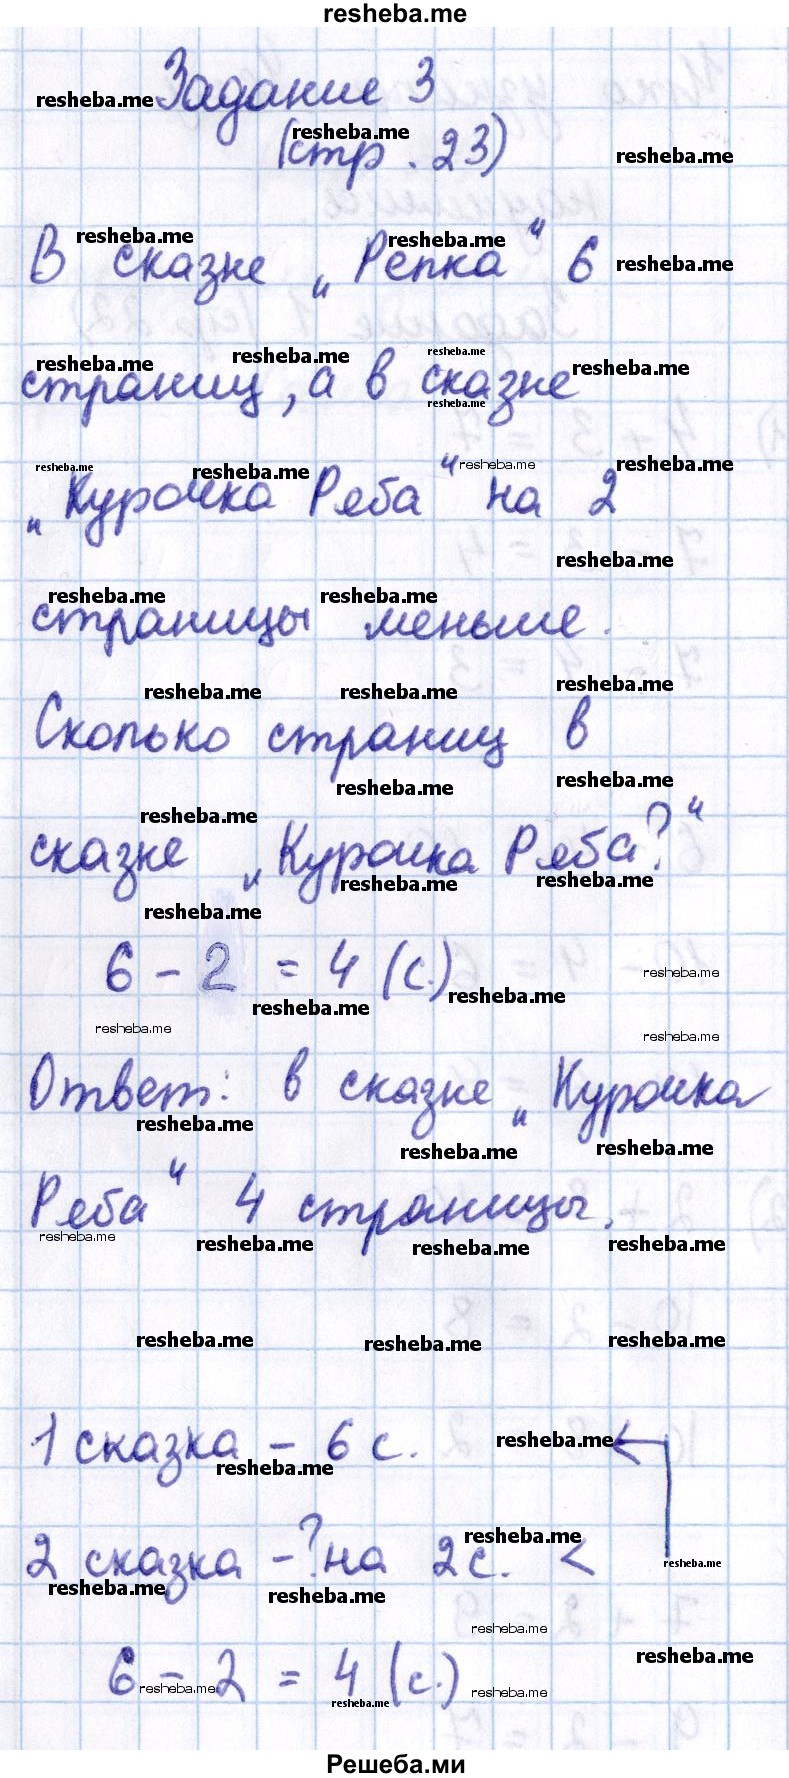 resheba.me
Задание 3
(стр. 23)
В сказке „Репка“ 6
страниц, а в сказке
„Курочка Ряба“ на 2
страницы меньше.
Сколько страниц в
сказке „Курочка Ряба?“
6 - 2 = 4 (с.)
Ответ: в сказке „Курочка
Ряба“ 4 страницы.
1 сказка - 6 с.
2 сказка - ? на 2 с. <
6 - 2 = 4 (с.)
Решеба.ми